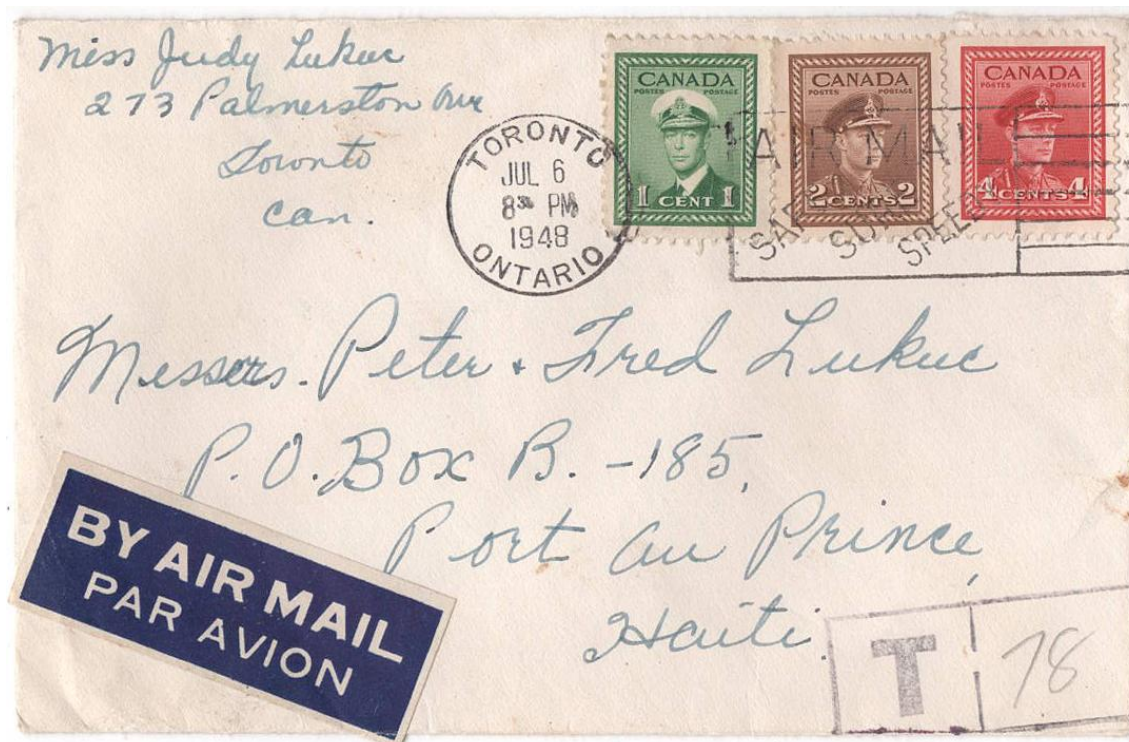 Miss Judy Lukuc
273 Palmerston Ave
Toronto
Can.
TORONTO
JUL 6
8³⁰ PM
1948
ONTARIO
CANADA
POSTES POSTAGE
1 CENT 1
CANADA
POSTES POSTAGE
2 CENTS 2
CANADA
POSTES POSTAGE
4 CENTS 4
AIR MAIL
Messers. Peter + Fred Lukuc
P.O. Box B. -185,
Port au Prince,
Haiti
BY AIR MAIL
PAR AVION
T 78